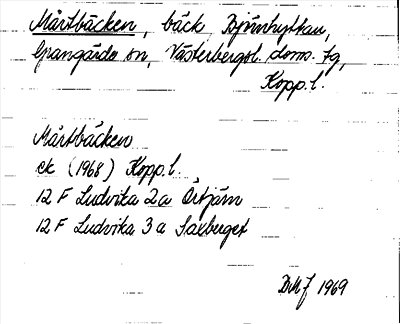 Mårtbäcken, bäck Björnhyttan,
Grangärde sn, Västerbergsl. doms. fg,
Kopp.l.
Mårtbäcken
ek (1968) Kopp.l.
12 F Ludvika 2a Örtjärn
12 F Ludvika 3a Saxberget
1969